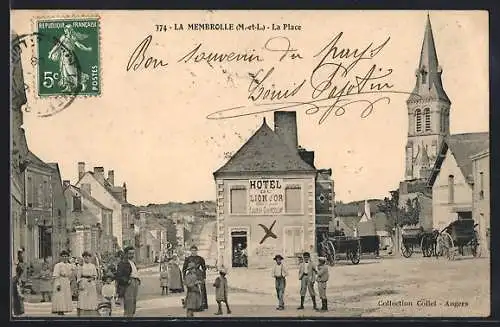 374 - LA MEMBROLLE (M.-et-L.) - La Place
REPUBLIQUE FRANÇAISE
5c
POSTES
Bon souvenir du pays
Louis Pajotin
HOTEL
DU
LION D'OR
Collection Collet - Angers